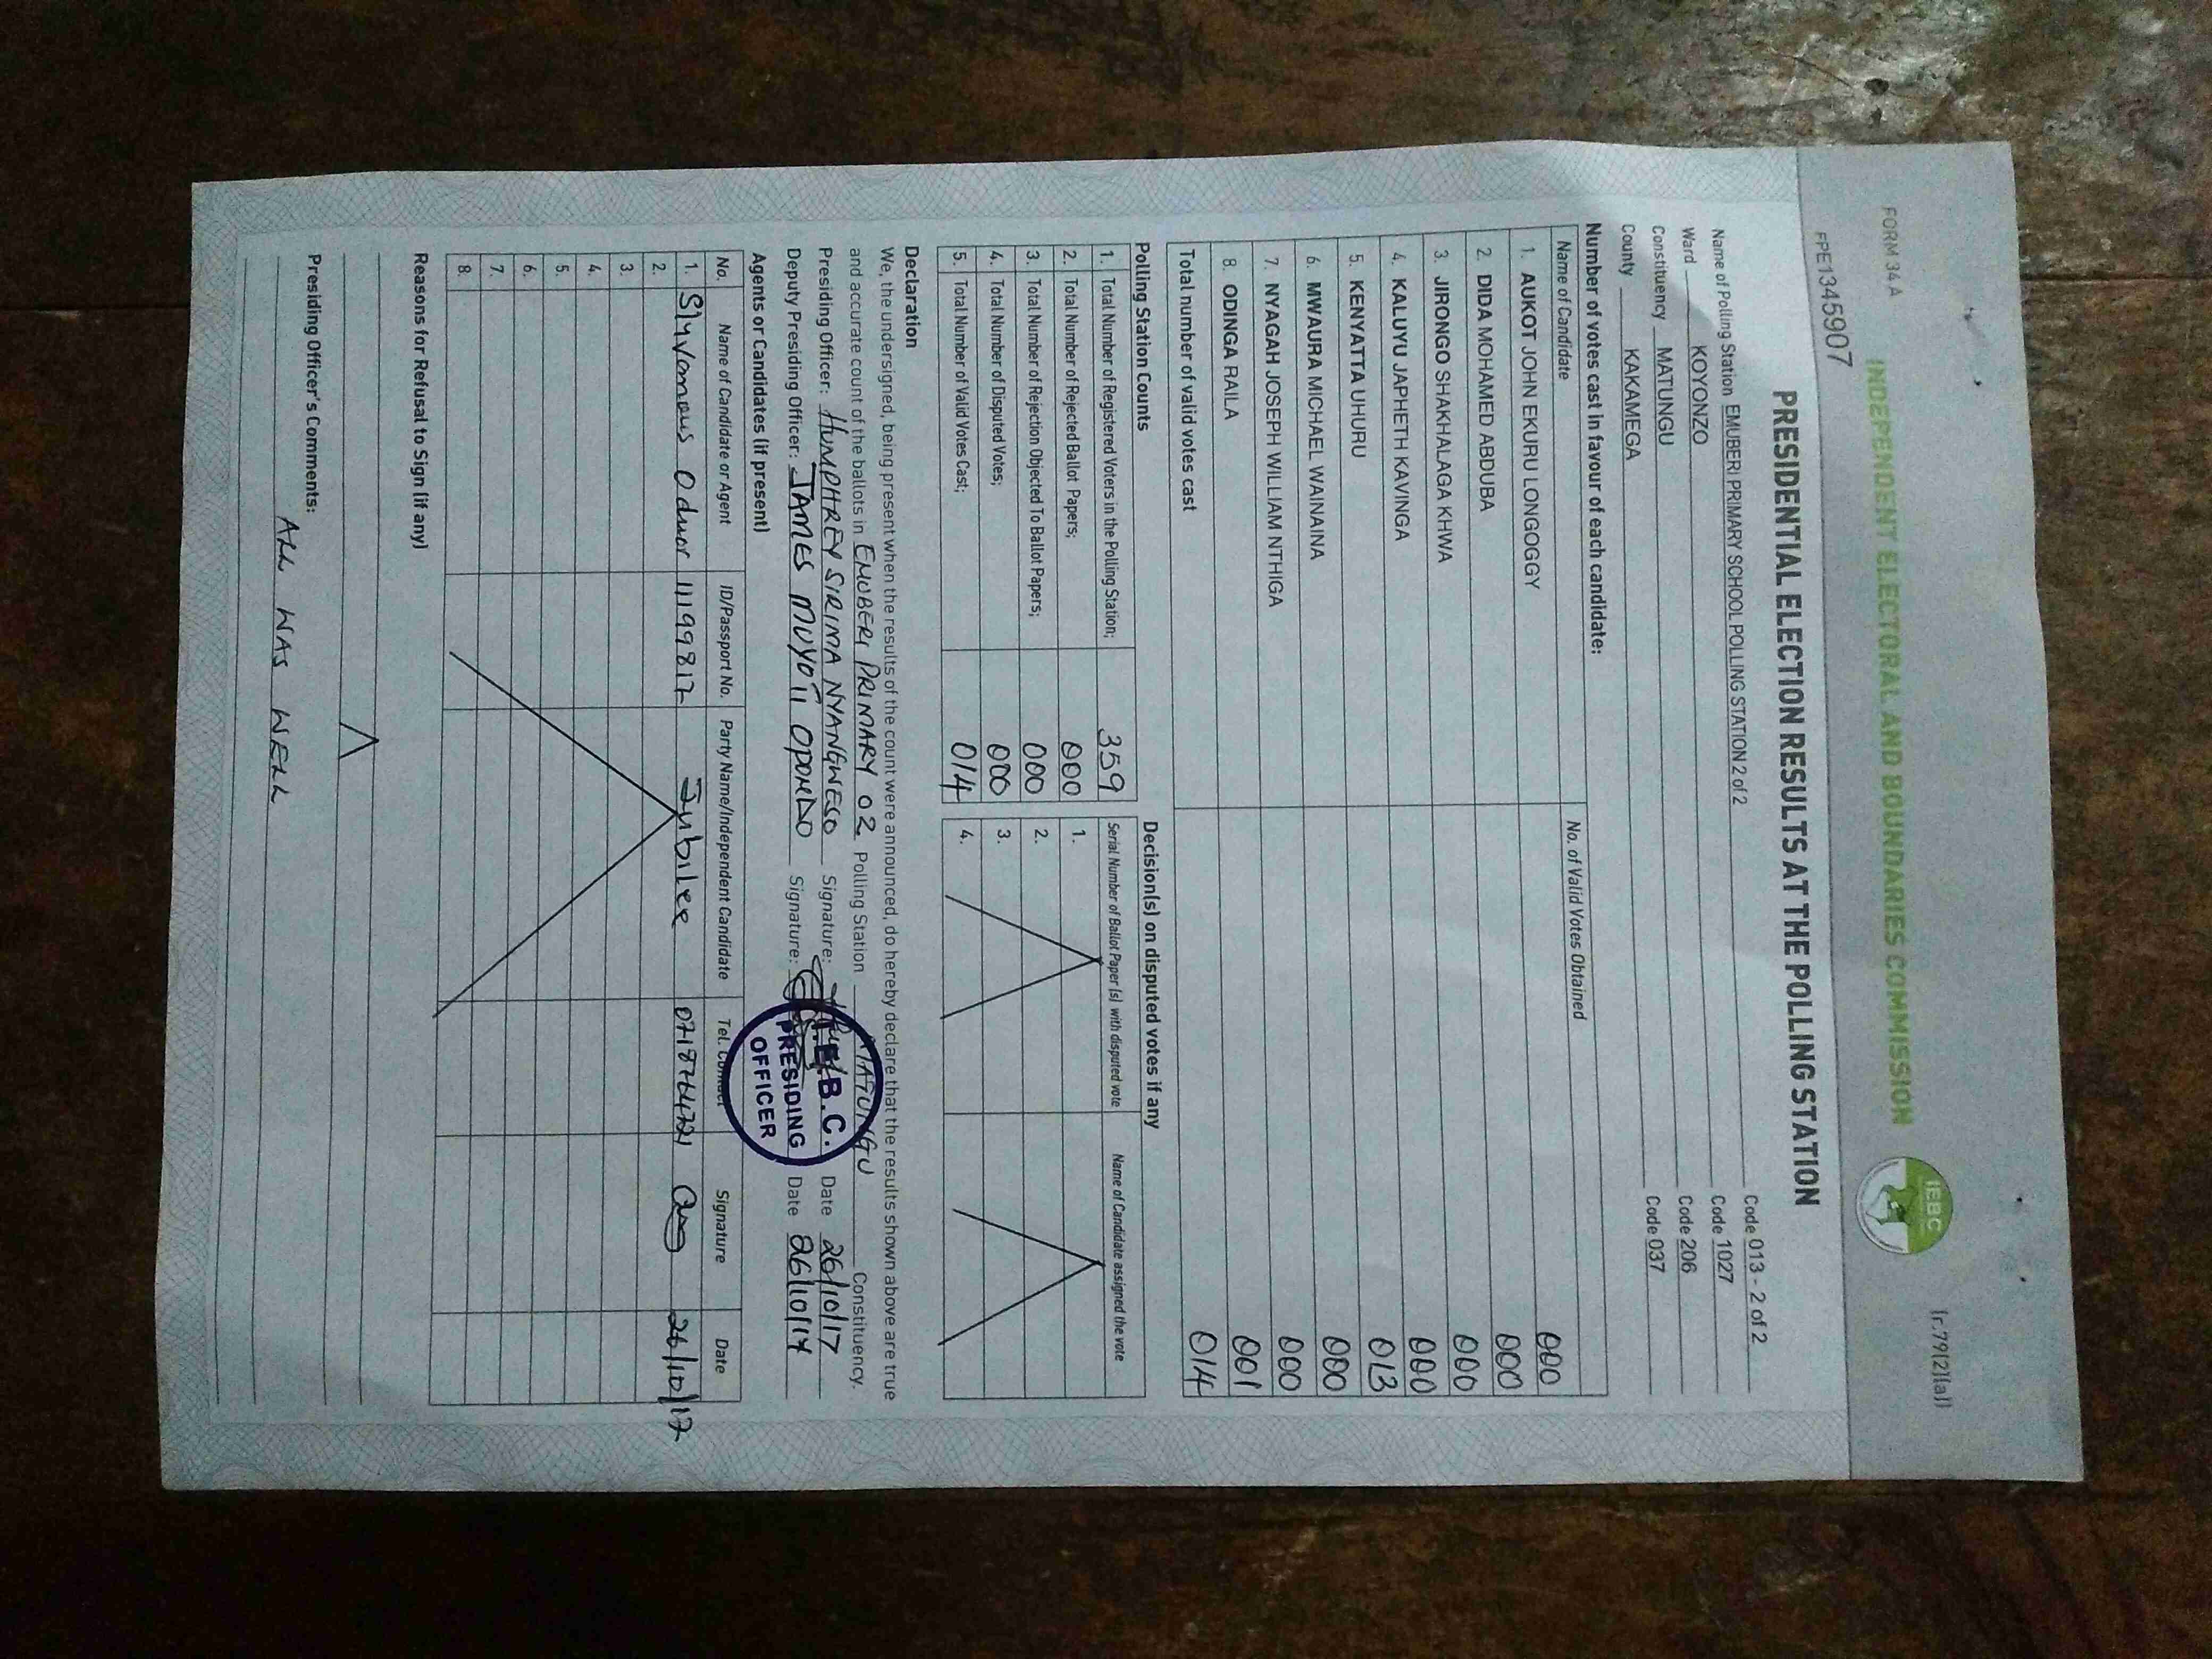 FORM 34A
INDEPENDENT ELECTORAL AND BOUNDARIES COMMISSION
IEBC
(r.79(2)(a))
FPE1345907
PRESIDENTIAL ELECTION RESULTS AT THE POLLING STATION
Name of Polling Station EMUBERI PRIMARY SCHOOL POLLING STATION 2 of 2 Code 013 - 2 of 2
Ward KOYONZO Code 1027
Constituency MATUNGU Code 206
County KAKAMEGA Code 037
Number of votes cast in favour of each candidate:
Name of Candidate No. of Valid Votes Obtained
1. AUKOT JOHN EKURU LONGOGGY 000
2. DIDA MOHAMED ABDUBA 000
3. JIRONGO SHAKHALAGA KHWA 000
4. KALUYU JAPHETH KAVINGA 000
5. KENYATTA UHURU 013
6. MWAURA MICHAEL WAINAINA 000
7. NYAGAH JOSEPH WILLIAM NTHIGA 000
8. ODINGA RAILA 001
Total number of valid votes cast 014
Polling Station Counts
1. Total Number of Registered Voters in the Polling Station; 359
2. Total Number of Rejected Ballot Papers; 000
3. Total Number of Rejection Objected To Ballot Papers; 000
4. Total Number of Disputed Votes; 000
5. Total Number of Valid Votes Cast; 014
Decision(s) on disputed votes if any
Serial Number of Ballot Paper (s) with disputed vote Name of Candidate assigned the vote
1.
2.
3.
4.
Declaration
We, the undersigned, being present when the results of the count were announced, do hereby declare that the results shown above are true
and accurate count of the ballots in EMUBERI PRIMARY 02 Polling Station MATUNGU Constituency.
Presiding Officer: HUMPHREY SIRIMA NYANGWESO Signature: Date 26/10/17
Deputy Presiding Officer: JAMES MUYOTI OPONDO Signature: Date 26/10/17
I.E.B.C.
PRESIDING
OFFICER
Agents or Candidates (if present)
No. Name of Candidate or Agent ID/Passport No. Party Name/Independent Candidate Tel. Contact Signature Date
1. Slyvanous Oduor 11199817 Jubilee 0718764721 26/10/17
2.
3.
4.
5.
6.
7.
8.
Reasons for Refusal to Sign (if any)
Presiding Officer's Comments:
ALL WAS WELL